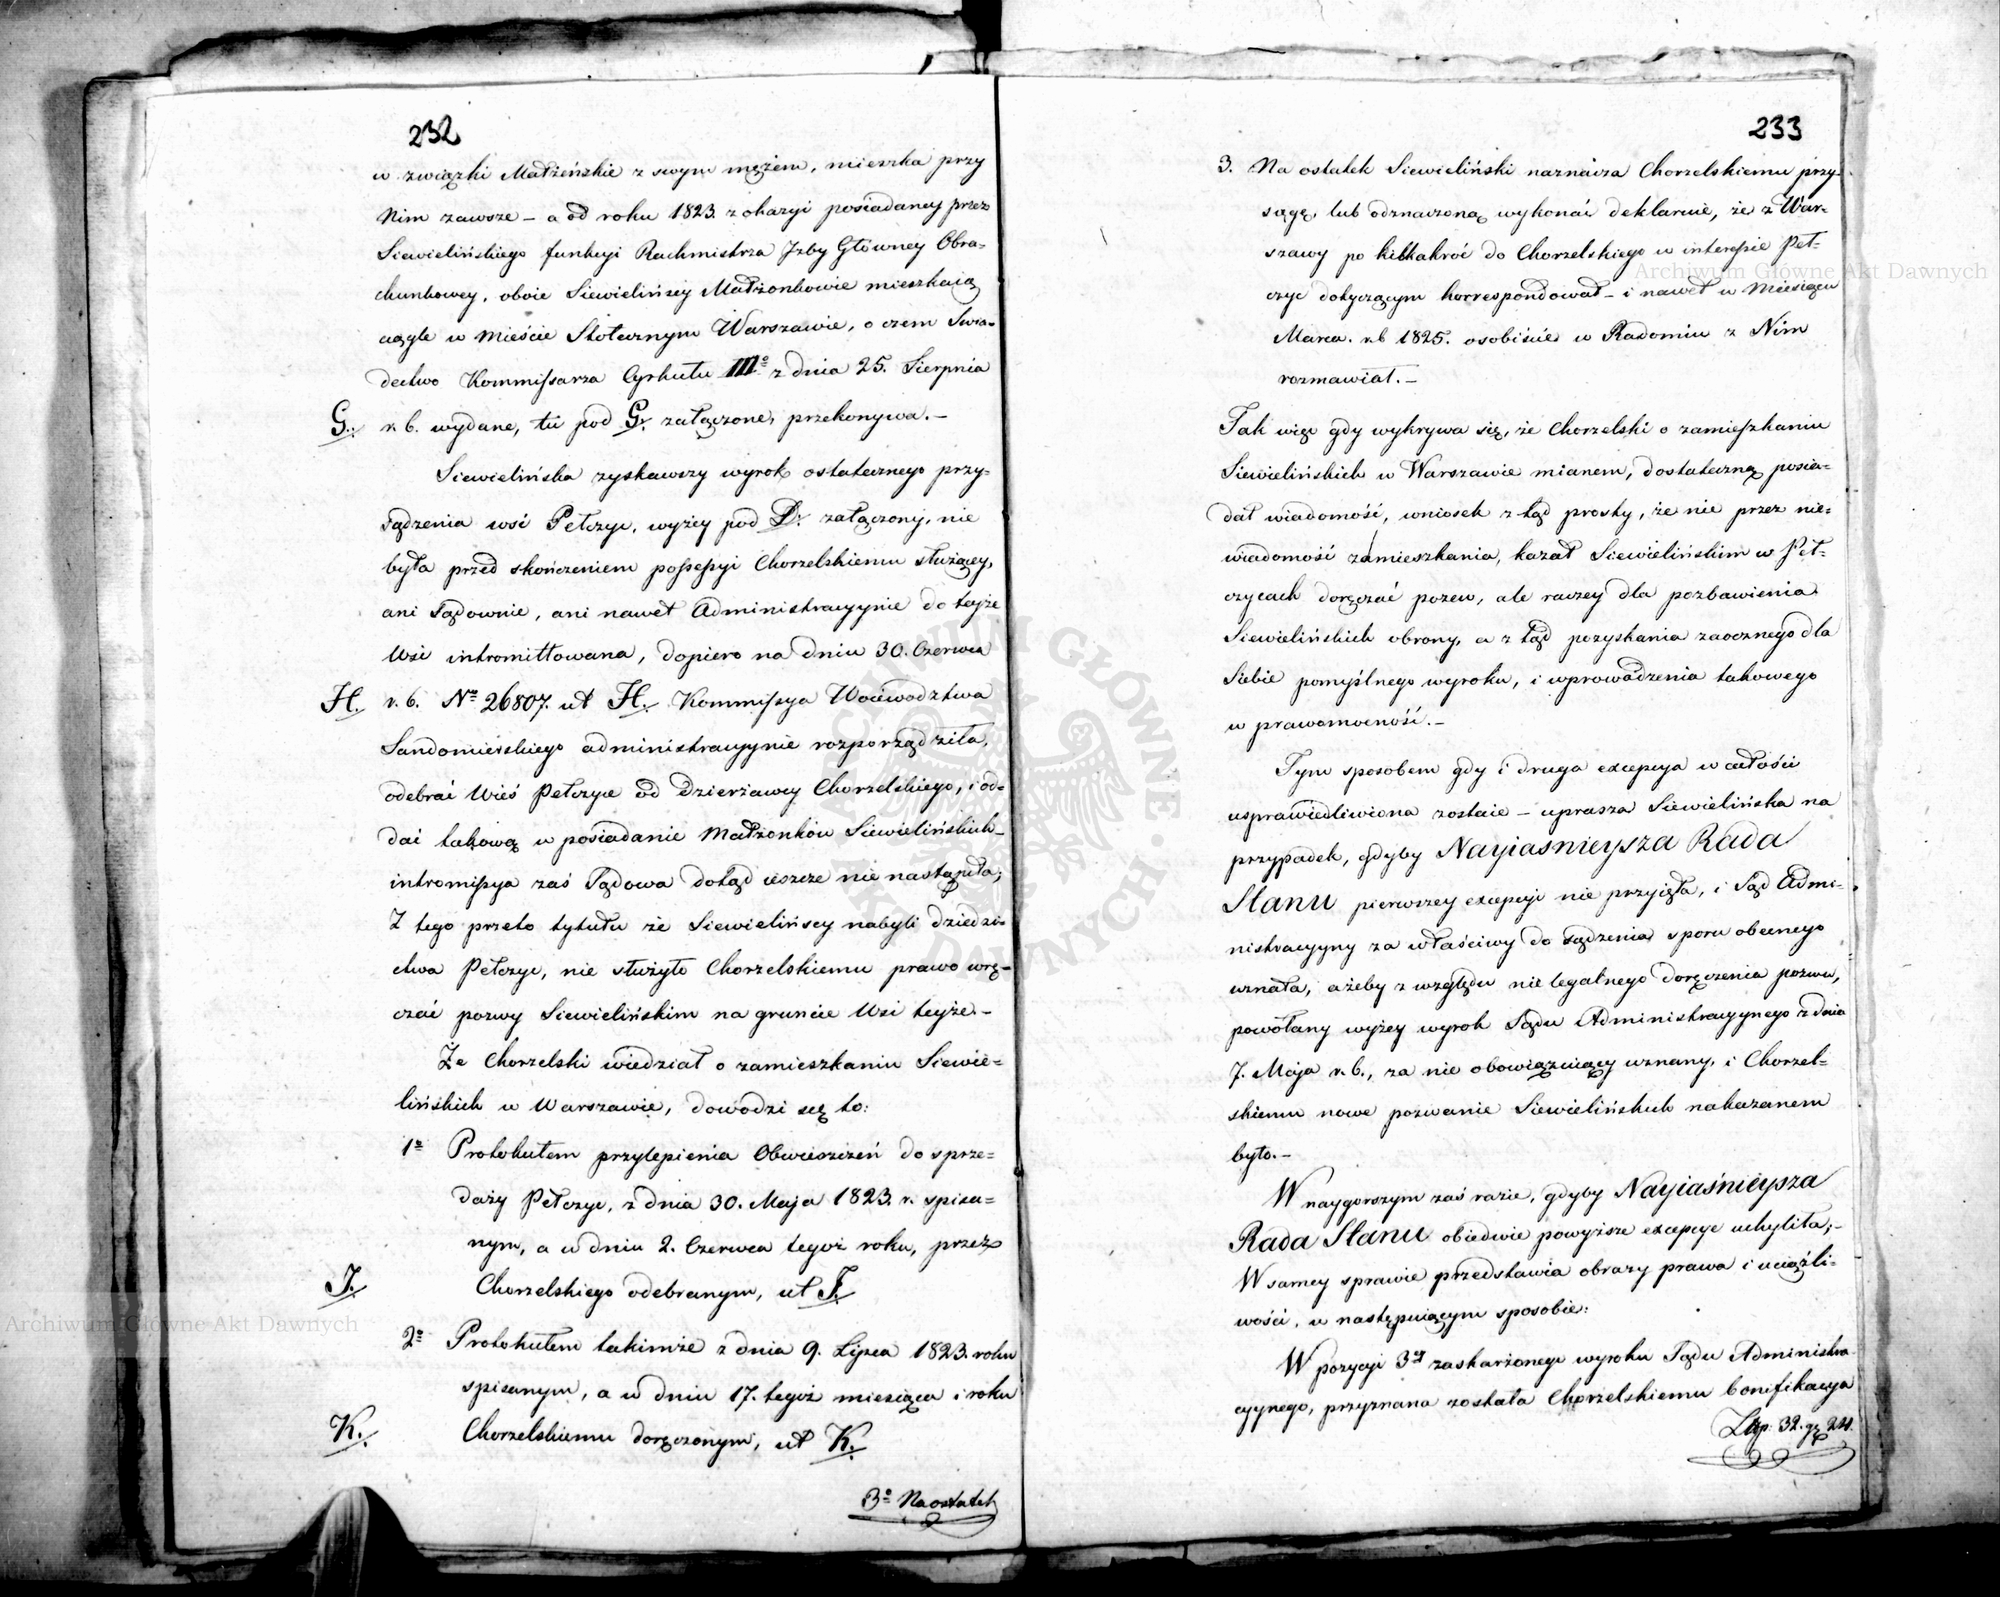 232
w związki Małżeńskie z swym mężem, mieszka przy
Nim zawsze – a od roku 1823. z okazyi posiadaney przez
Siewielińskiego funkcyi Rachmistrza Izby Główney Obra=
chunkowey, oboie Siewielińscy Małżonkowie mieszkaią
ciągle w Mieście Stołecznym Warszawie, o czem Swia=
dectwo Kommissarza Cyrkułu IIIº z dnia 25. Sierpnia
G. r. b. wydane, tu pod G. załączone, przekonywa.–
Siewielińska zyskawszy wyrok ostatecznego przy=
sądzenia wsi Pełczyc, wyżey pod D. załączony, nie
była przed skończeniem possessyi Chorzelskiemu służącey,
ani sądownie, ani nawet Administracyynie do teyże
Wsi intromittowana, dopiero na dniu 30. Czerwca
H. r. b. Nº 26807. ut H. Kommissya Woiewodztwa
Sandomierskiego administracyynie rozporządziła,
odebrać Wieś Pełczyce od Dzierżawcy Chorzelskiego, i od=
dać takową w posiadanie Małżonków Siewielińskich–
intromissya zaś Sądowa dotąd ieszcze nie nastąpiła;
Z tego przeto tytułu że Siewielińscy nabyli dziedzi=
ctwa Pełczyc, nie służyło Chorzelskiemu prawo wrę=
czać pozwy Siewielińskim na gruncie Wsi teyże.–
Że Chorzelski wiedział o zamieszkaniu Siewie=
lińskich w Warszawie, dowodzi się to:
1º Protokułem przylepienia Obwieszczeń do sprze=
daży Pełczyc, z dnia 30. Maja 1823. r. spisa=
nym, a w dniu 2. Czerwca tegoż roku, przez
J. Chorzelskiego odebranym, ut J.
2º Protokułem takimże z dnia 9. Lipca 1823. roku
spisanym, a w dniu 17. tegoż miesiąca i roku
K. Chorzelskiemu doręczonym, ut K.
3º Naostatek
233
3. Na ostatek Siewieliński naznacza Chorzelskiemu przy=
sięgę, lub odznaczoną wykonać deklaruie, że z War=
szawy po kilkakroć do Chorzelskiego w interessie Peł=
czyc dotyczącym korrespondował – i nawet w Miesiącu
Marcu. r. b 1825. osobiście w Radomiu z Nim
rozmawiał.–
Tak więc gdy wykrywa się, że Chorzelski o zamieszkaniu
Siewielińskich w Warszawie mianem, dostateczną posia=
dał wiadomość, wniosek z tąd prosty, że nie przez nie=
wiadomość zamieszkania, kazał Siewielińskim w Peł=
czycach doręczać pozew, ale raczey dla pozbawienia
Siewielińskich obrony, a z tąd pozyskania zaocznego dla
Siebie pomyślnego wyroku, i wprowadzenia takowego
w prawomocność.–
Tym sposobem gdy i druga excepcya w całości
usprawiedliwiona zostaie – uprasza Siewielińska na
przypadek, gdyby Nayiaśnieysza Rada
Stanu pierwszey excepcyi nie przyięła, i Sąd Admi=
nistracyyny za właściwy do sądzenia sporu obecnego
uznała, ażeby z względu nie legalnego doręczenia pozwu,
powołany wyżey wyrok Sądu Administracyynego z dnia
7. Maja r. b., za nie obowiązuiący uznany, i Chorzel=
skiemu nowe pozwanie Siewielińskich nakazanem
było.–
W naygorszym zaś razie, gdyby Nayiaśnieysza
Rada Stanu obiedwie powyższe excepcye uchyliła;–
W samey sprawie przedstawia obrazy prawa i uciążli=
wości, w następuiącym sposobie:
W pozycyi 3ey zaskarżonego wyroku Sądu Administra
cyynego, przyznana została Chorzelskiemu bonifikacya
Złtp: 32. gr 24.
Archiwum Główne Akt Dawnych
Archiwum Główne Akt Dawnych
ARCHIWUM GŁÓWNE AKT DAWNYCH